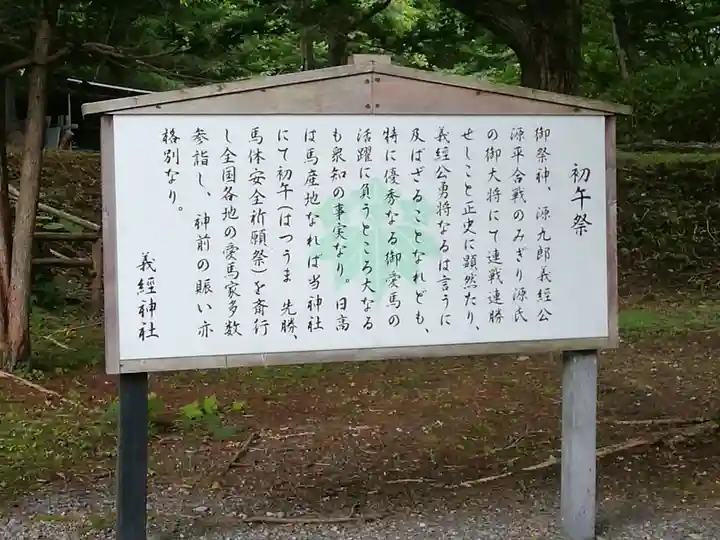 初午祭
御祭神、源九郎義經公
源平合戦のみぎり源氏
の御大将にて連戦連勝
せしこと正史に顕然たり、
義經公勇将なるは言うに
及ばざることなれども、
特に優秀なる御愛馬の
活躍に負うところ大なる
も衆知の事実なり。日高
は馬産地なれば当神社
にて初午(はつうま 先勝、
馬休安全祈願祭)を斎行
し全国各地の愛馬家多数
参詣し、神前の賑い亦
格別なり。
義經神社